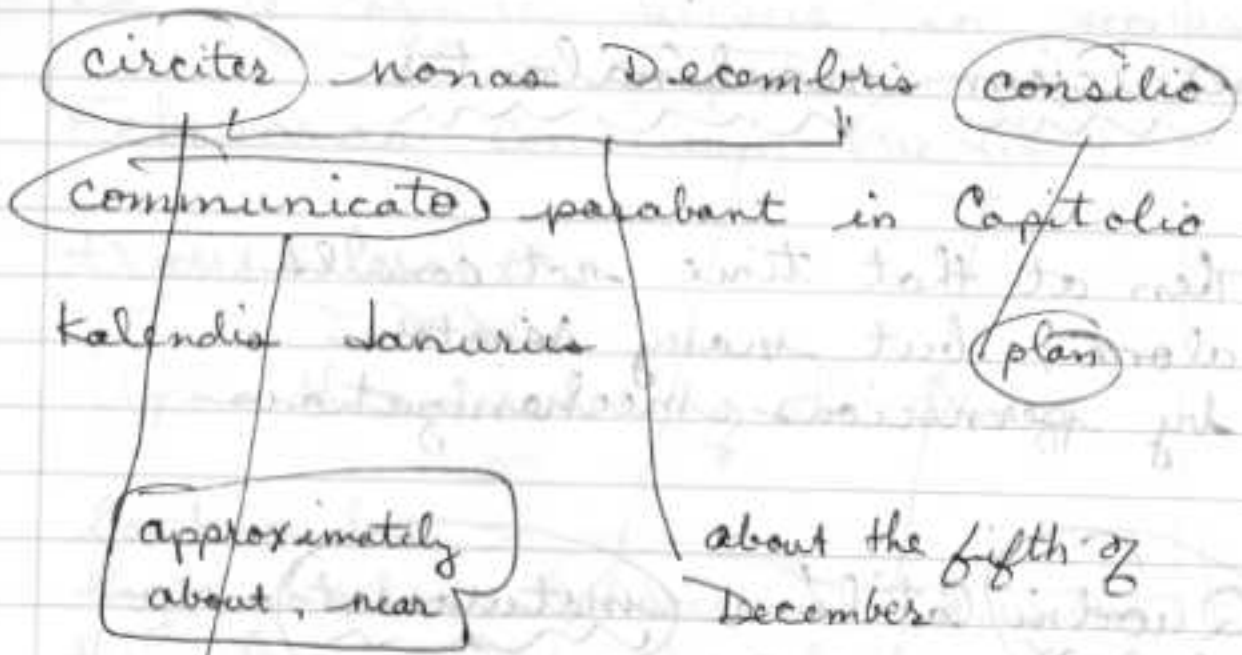 circiter nonas Decembris consilio
communicato parabant in Capitolio
Kalendis Januriis
plan
approximately
about, near
about the fifth of
December